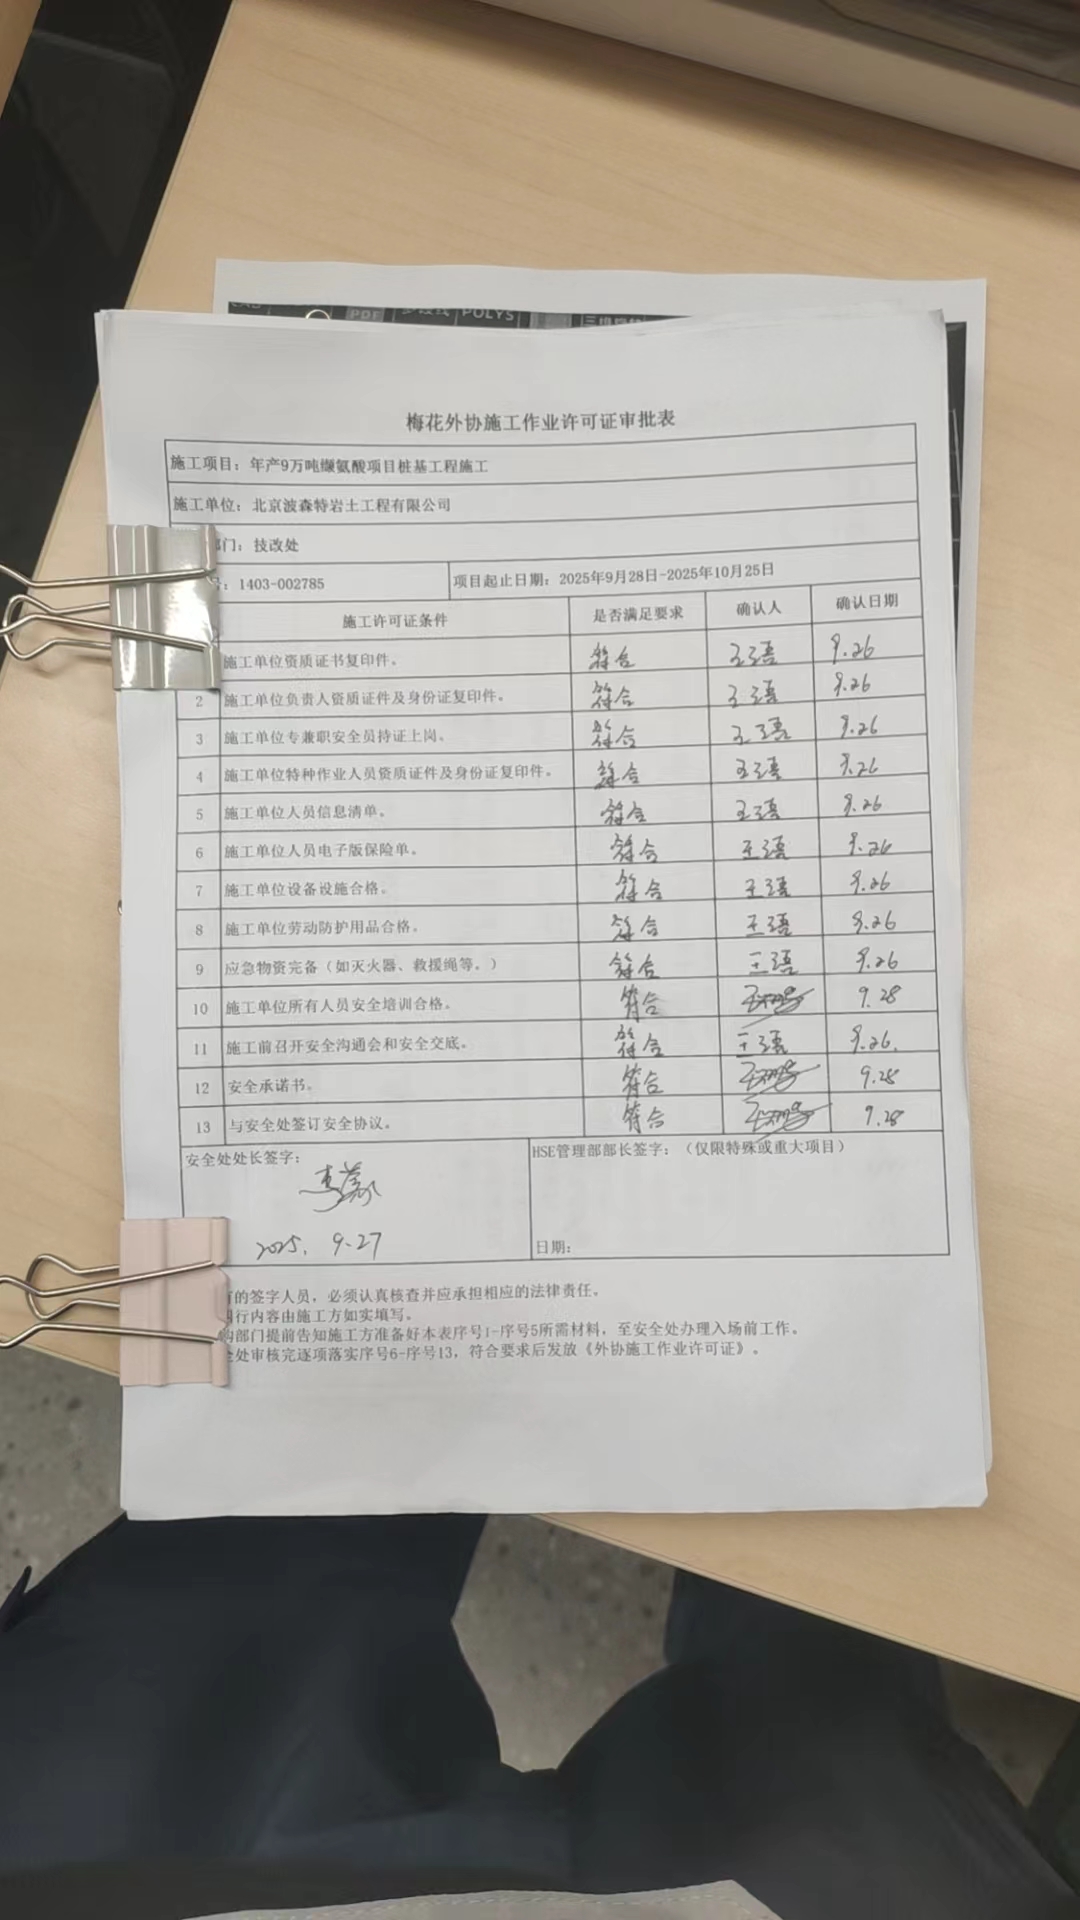 PDF
POLYS
梅花外协施工作业许可证审批表
施工项目：年产9万吨缬氨酸项目桩基工程施工
施工单位：北京波森特岩土工程有限公司
部门：技改处
号：1403-002785 项目起止日期：2025年9月28日-2025年10月25日
施工许可证条件 是否满足要求 确认人 确认日期
施工单位资质证书复印件。 符合 王语 9.26
2 施工单位负责人资质证件及身份证复印件。 符合 王语 9.26
3 施工单位专兼职安全员持证上岗。 符合 王语 9.26
4 施工单位特种作业人员资质证件及身份证复印件。 符合 王语 9.26
5 施工单位人员信息清单。 符合 王语 9.26
6 施工单位人员电子版保险单。 符合 王语 9.26
7 施工单位设备设施合格。 符合 王语 9.26
8 施工单位劳动防护用品合格。 符合 王语 9.26
9 应急物资完备（如灭火器、救援绳等。） 符合 王语 9.26
10 施工单位所有人员安全培训合格。 符合 9.28
11 施工前召开安全沟通会和安全交底。 符合 王语 9.26.
12 安全承诺书。 符合 9.28
13 与安全处签订安全协议。 符合 9.28
安全处处长签字： HSE管理部部长签字：（仅限特殊或重大项目）
2025. 9.27 日期：
的签字人员，必须认真核查并应承担相应的法律责任。
行内容由施工方如实填写。
部门提前告知施工方准备好本表序号1-序号5所需材料，至安全处办理入场前工作。
处审核完逐项落实序号6-序号13，符合要求后发放《外协施工作业许可证》。